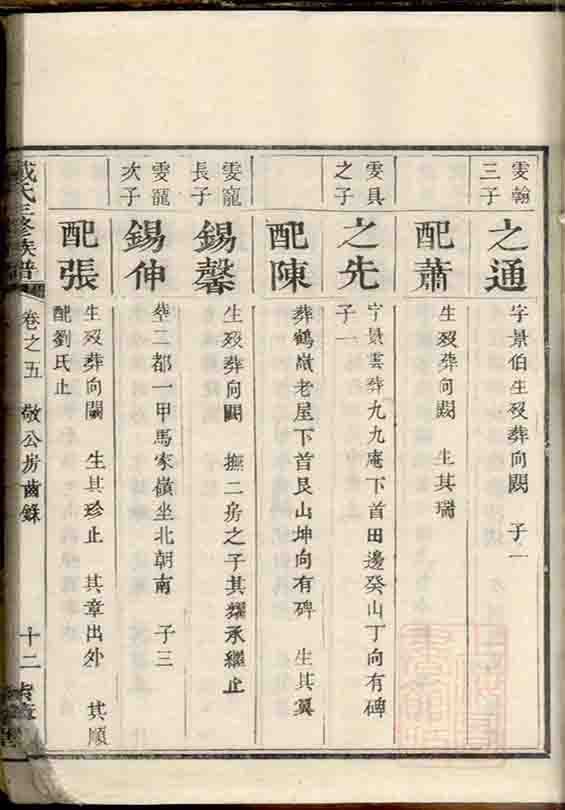 雯翰
三子
之通
字景伯生歿葬向闕　子一
配蕭
生歿葬向闕　生其瑞
雯具
之子
之先
字景雲葬九九庵下首田邊癸山丁向有碑
子一
配陳
葬鶴嶺老屋下首艮山坤向有碑　生其翼
雯寵
長子
錫馨
生歿葬向闕　撫二房之子其耀承繼止
雯寵
次子
錫伸
葬二都一甲馬家嶺坐北朝南　子三
配張
生歿葬向闕　生其珍止　其章出外　其順
配劉氏止
戴氏三修族譜
卷之五　敬公房齒錄
十二